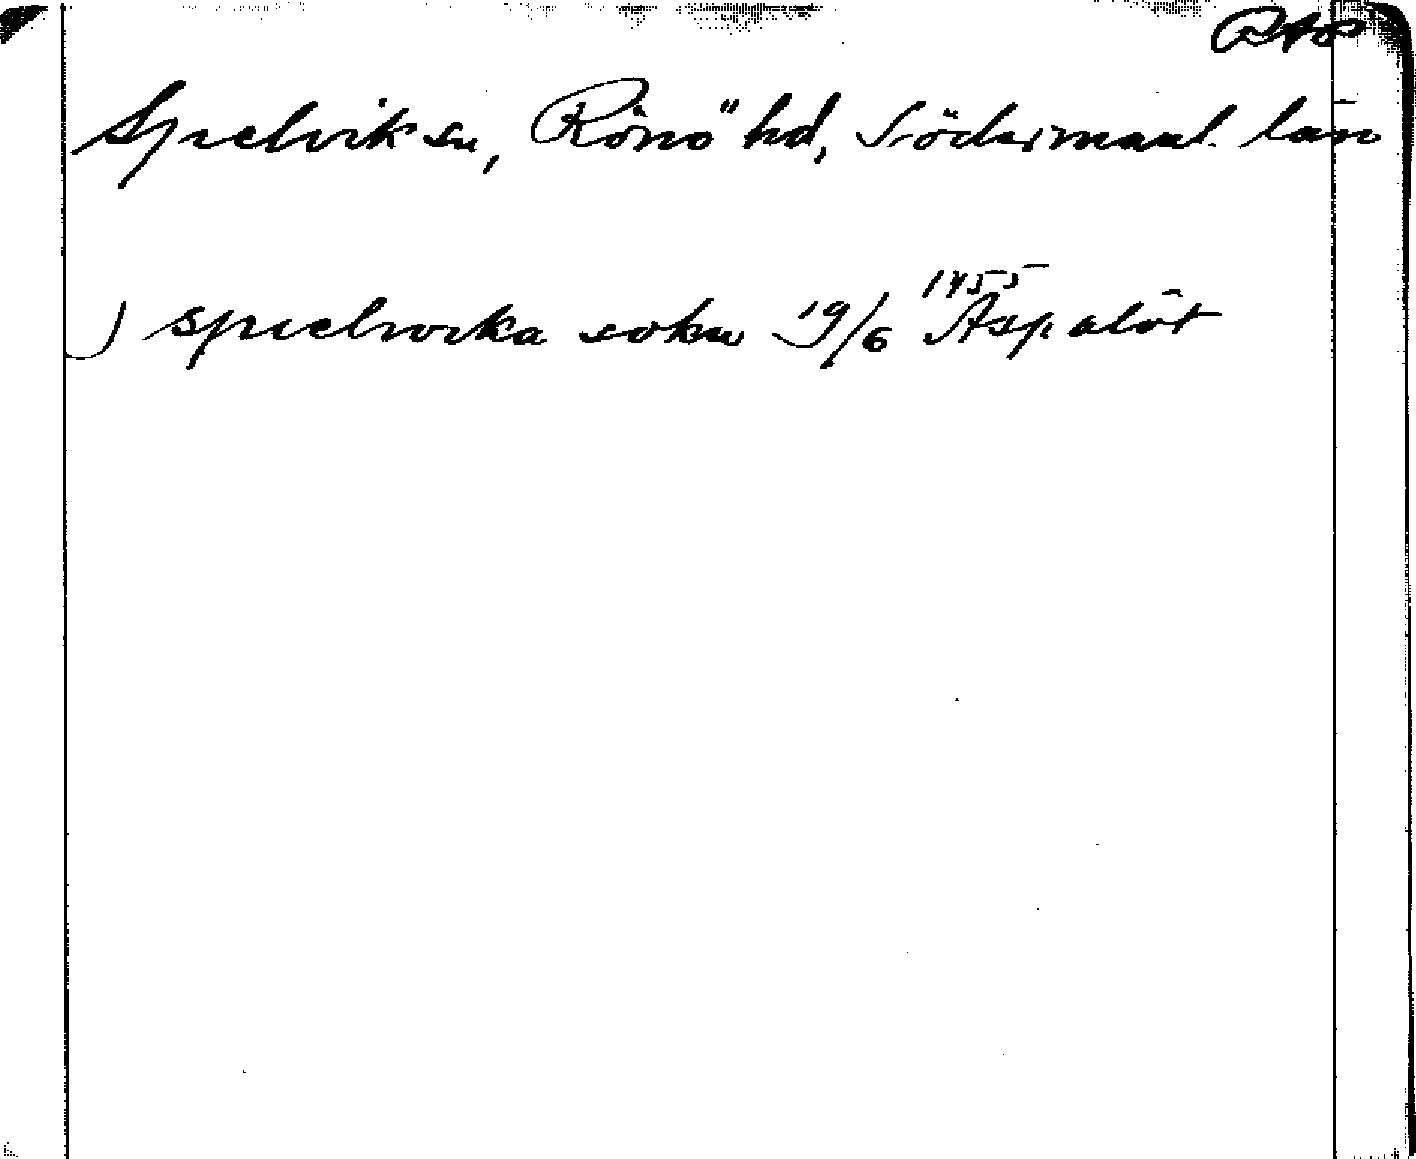 Spelvik sn, Rönö hd, Södermanl. län
J spielwika sokn 19/6 1455 Aspalöt